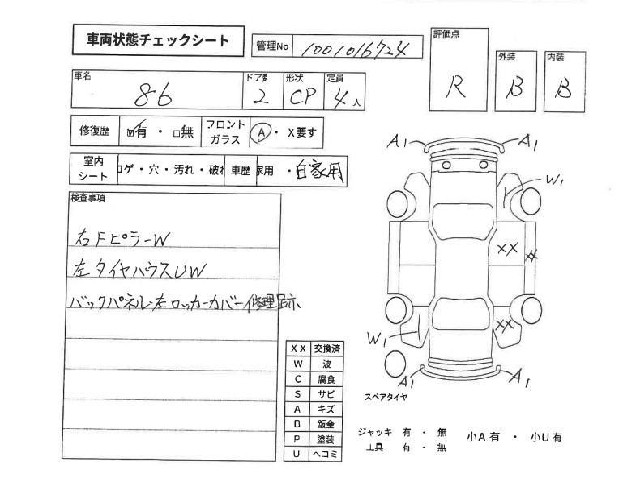 車両状態チェックシート
管理No 1001016724
評価点 R
外装 B
内装 B
車名 86
ドア数 2
形状 CP
定員 4人
修復歴 有・無
フロントガラス A・X要す
室内シート コゲ・穴・汚れ・破れ
車歴 家用・自家用
検査事項
右FピラーW
左タイヤハウスUW
バックパネル・右ロッカーカバー修理跡
XX 交換済
W 波
C 腐食
S サビ
A キズ
B 鈑金
P 塗装
U ヘコミ
A1 A1
W1
XX XX
XX
W1
A1 A1
スペアタイヤ
ジャッキ 有・無
工具 有・無
小A有・小U有